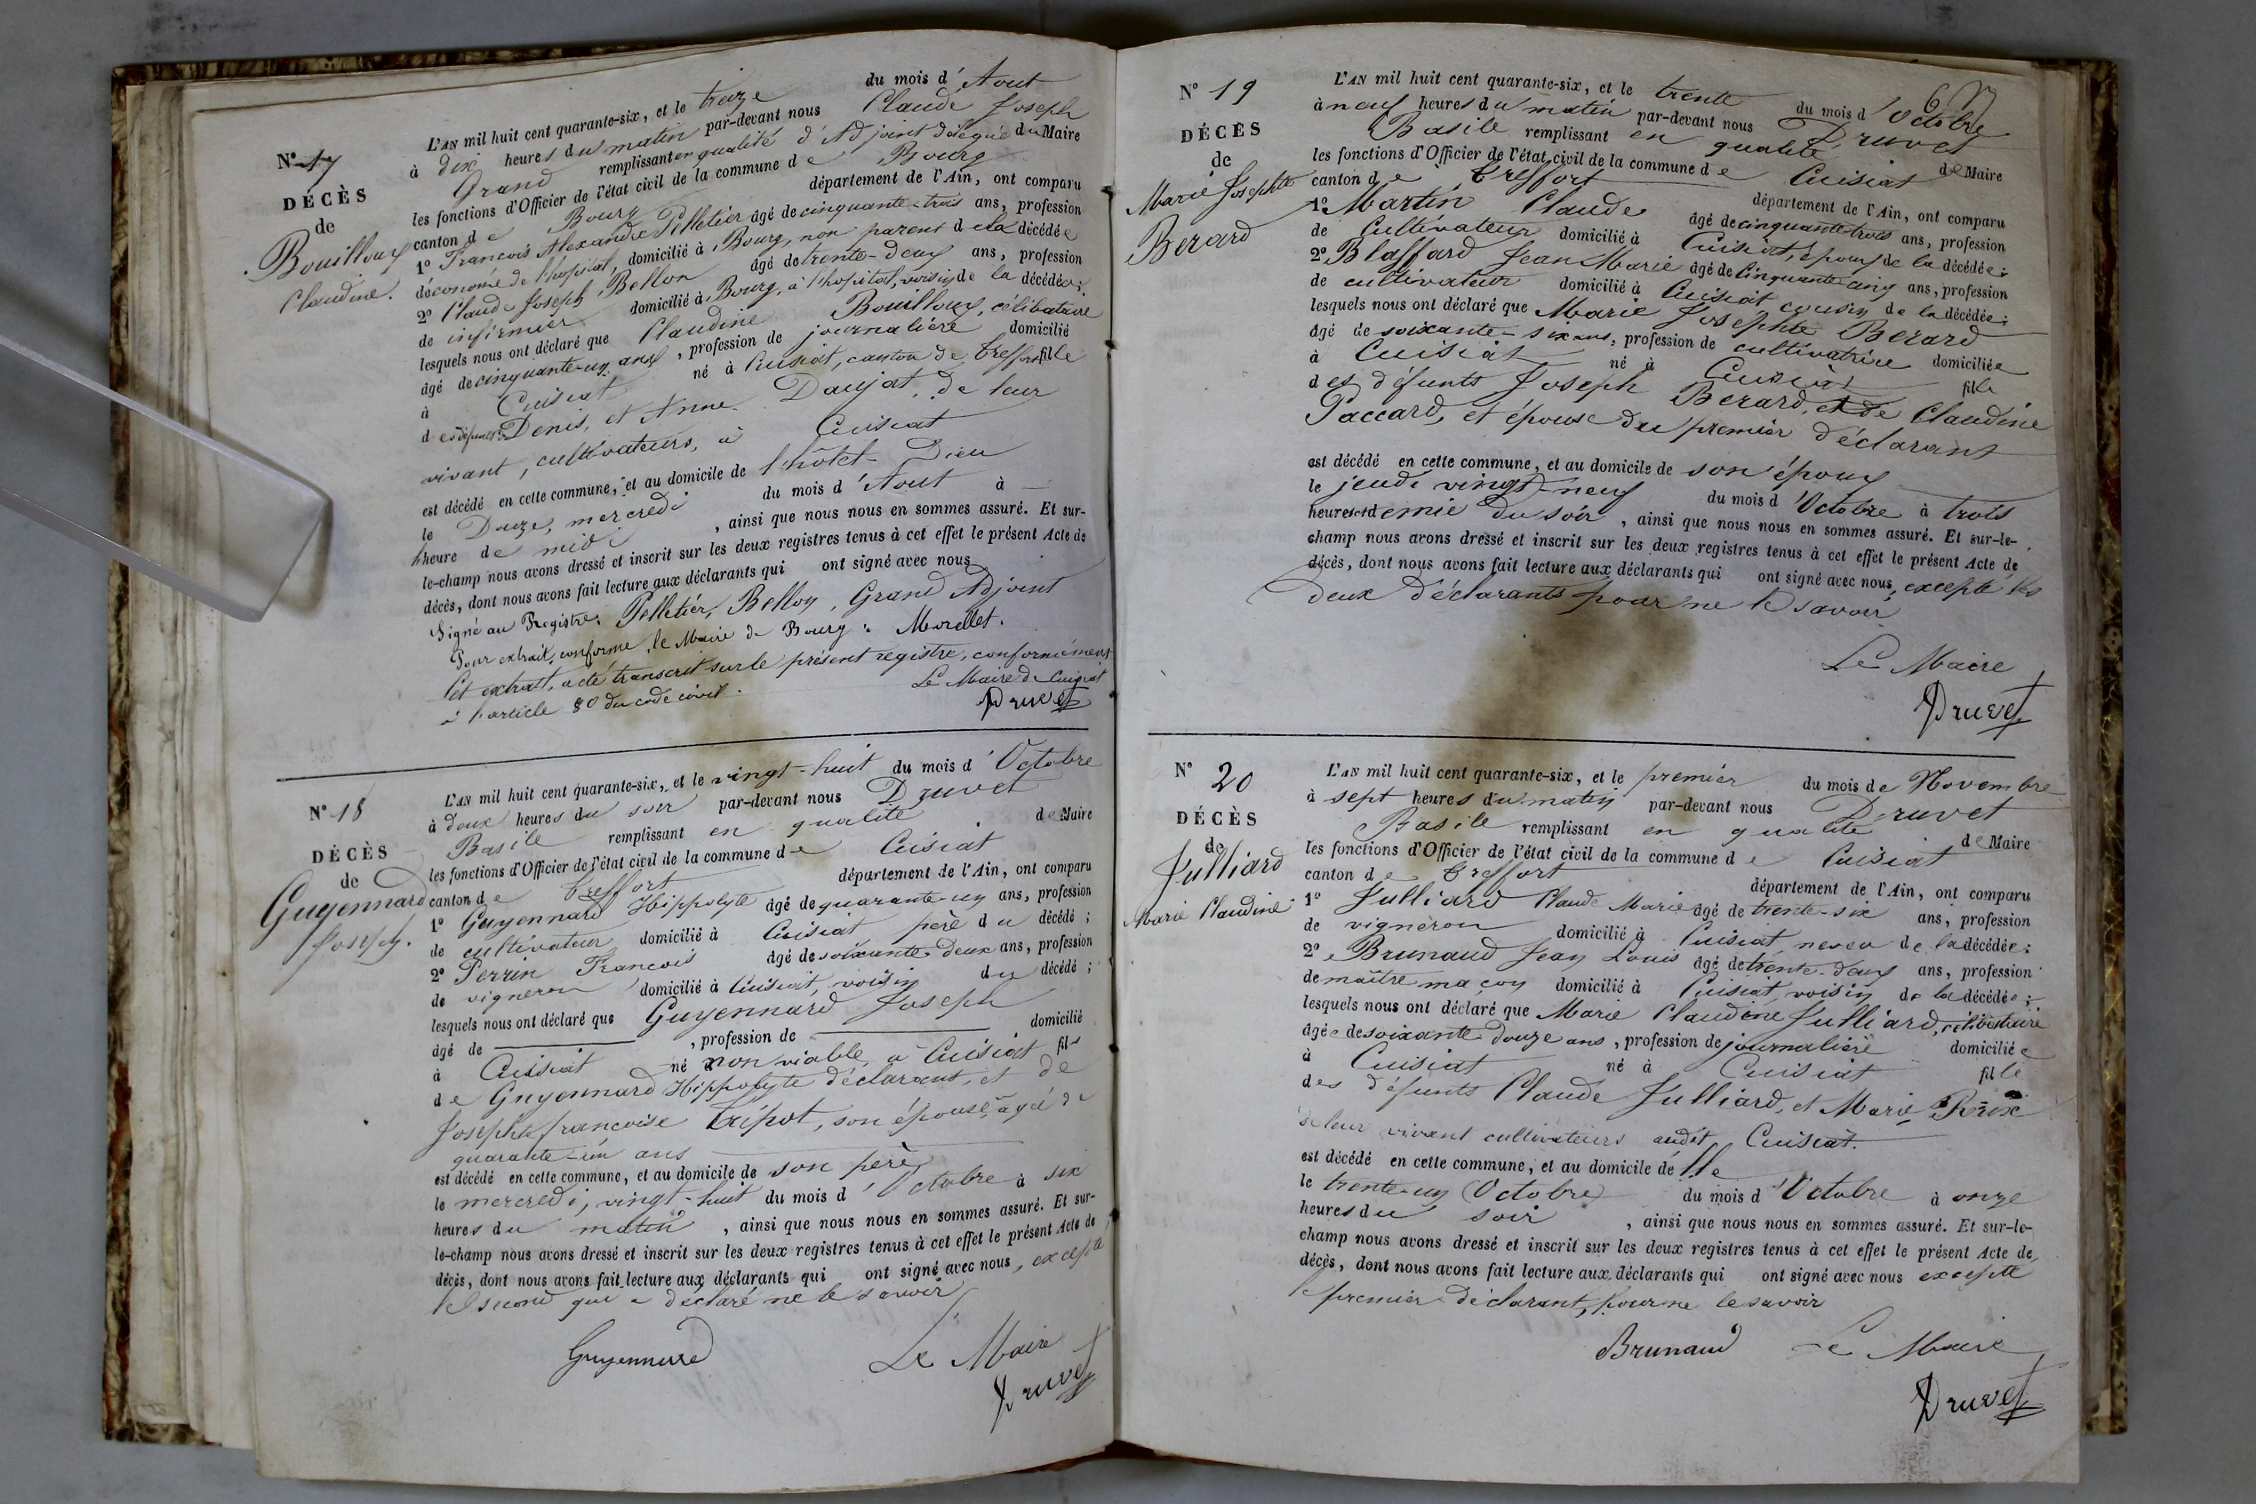 N° 17
DÉCÈS
de
Bouilloux
Claudine.
L'AN mil huit cent quarante-six, et le treize du mois d'Aout
à dix heures du matin par-devant nous Claude Joseph
Grand remplissant en qualité d'Adjoint délégué du Maire
les fonctions d'Officier de l'état civil de la commune de Bourg
canton de Bourg département de l'Ain, ont comparu
1° François Alexandre Pelletier âgé de cinquante-trois ans, profession
d'économe de l'hopital, domicilié à Bourg, non parent de la décédée
2° Claude Joseph Bellon âgé de trente-deux ans, profession
de infirmier domicilié à Bourg, à l'hopital, voisin de la décédée;
lesquels nous ont déclaré que Claudine Bouilloux, célibataire
âgé de cinquante-un ans, profession de journalière domicilié
à Cuisiat né à Cuisiat, canton de Treffort fille
des défunts Denis, et Anne Daujat, de leur
vivant, cultivateurs, à Cuisiat
est décédé en cette commune, et au domicile de l'hôtel-Dieu
le Douze, mercredi du mois d'Aout à
heure de midi, ainsi que nous nous en sommes assuré. Et sur-
le-champ nous avons dressé et inscrit sur les deux registres tenus à cet effet le présent Acte de
décès, dont nous avons fait lecture aux déclarants qui ont signé avec nous
Signé au Registre: Pelletier, Bellon, Grand Adjoint
Pour extrait conforme, le Maire de Bourg: Morellet.
Cet extrait, a été transcrit sur le présent registre, conformément
à l'article 80 du code civil. Le Maire de Cuisiat
Druvet
N° 18
DÉCÈS
de
Guyennard
Joseph.
L'AN mil huit cent quarante-six, et le vingt-huit du mois d'Octobre
à deux heures du soir par-devant nous Druvet
Basile remplissant en qualité de Maire
les fonctions d'Officier de l'état civil de la commune de Cuisiat
canton de Treffort département de l'Ain, ont comparu
1° Guyennard Hippolyte âgé de quarante-un ans, profession
de cultivateur domicilié à Cuisiat père du décédé;
2° Perrin François âgé de soixante-deux ans, profession
de vigneron domicilié à Cuisiat, voisin du décédé;
lesquels nous ont déclaré que Guyennard Joseph
âgé de , profession de domicilié
à Cuisiat né non viable, à Cuisiat fils
de Guyennard Hippolyte déclarant, et de
Josephte françoise Tripot, son épouse, âgée de
quarante-un ans
est décédé en cette commune, et au domicile de son père
le mercredi, vingt-huit du mois d'Octobre à six
heures du matin, ainsi que nous nous en sommes assuré. Et sur-
le-champ nous avons dressé et inscrit sur les deux registres tenus à cet effet le présent Acte de
décès, dont nous avons fait lecture aux déclarants qui ont signé avec nous, excepté
le second qui a déclaré ne le savoir
Guyennard Le Maire
Druvet
67
N° 19
DÉCÈS
de
Marie Josephte
Berard
L'AN mil huit cent quarante-six, et le trente du mois d'Octobre
à neuf heures du matin par-devant nous Druvet
Basile remplissant en qualité de Maire
les fonctions d'Officier de l'état civil de la commune de Cuisiat
canton de Treffort département de l'Ain, ont comparu
1° Martin Claude âgé de cinquante trois ans, profession
de Cultivateur domicilié à Cuisiat, époux de la décédée;
2° Blaffard Jean Marie âgé de cinquante cinq ans, profession
de cultivateur domicilié à Cuisiat cousin de la décédée;
lesquels nous ont déclaré que Marie Josephte Berard
âgé de soixante-six ans, profession de cultivatrice domiciliée
à Cuisiat né à Cuisiat fille
des défunts Joseph Berard, et de Claudine
Paccard, et épouse du premier déclarant
est décédé en cette commune, et au domicile de son époux
le jeudi vingt-neuf du mois d'Octobre à trois
heures et demie du soir, ainsi que nous nous en sommes assuré. Et sur-le-
champ nous avons dressé et inscrit sur les deux registres tenus à cet effet le présent Acte de
décès, dont nous avons fait lecture aux déclarants qui ont signé avec nous, excepté les
deux déclarants pour ne le savoir
Le Maire
Druvet
N° 20
DÉCÈS
de
Julliard
Marie Claudine
L'AN mil huit cent quarante-six, et le premier du mois de Novembre
à sept heures du matin par-devant nous Druvet
Basile remplissant en qualité de Maire
les fonctions d'Officier de l'état civil de la commune de Cuisiat
canton de Treffort département de l'Ain, ont comparu
1° Julliard Claude Marie âgé de trente-six ans, profession
de vigneron domicilié à Cuisiat, neveu de la décédée;
2° Brunaud Jean Louis âgé de trente-deux ans, profession
de maître maçon domicilié à Cuisiat, voisin de la décédée;
lesquels nous ont déclaré que Marie Claudine Julliard, célibataire
âgée de soixante-douze ans, profession de journalière domiciliée
à Cuisiat né à Cuisiat fille
des défunts Claude Julliard, et Marie
de leur vivant cultivateurs audit Cuisiat.
est décédé en cette commune, et au domicile d'elle
le trente-un Octobre du mois d'Octobre à onze
heures du soir, ainsi que nous nous en sommes assuré. Et sur-le-
champ nous avons dressé et inscrit sur les deux registres tenus à cet effet le présent Acte de
décès, dont nous avons fait lecture aux déclarants qui ont signé avec nous excepté
le premier déclarant, pour ne le savoir
Brunaud Le Maire
Druvet